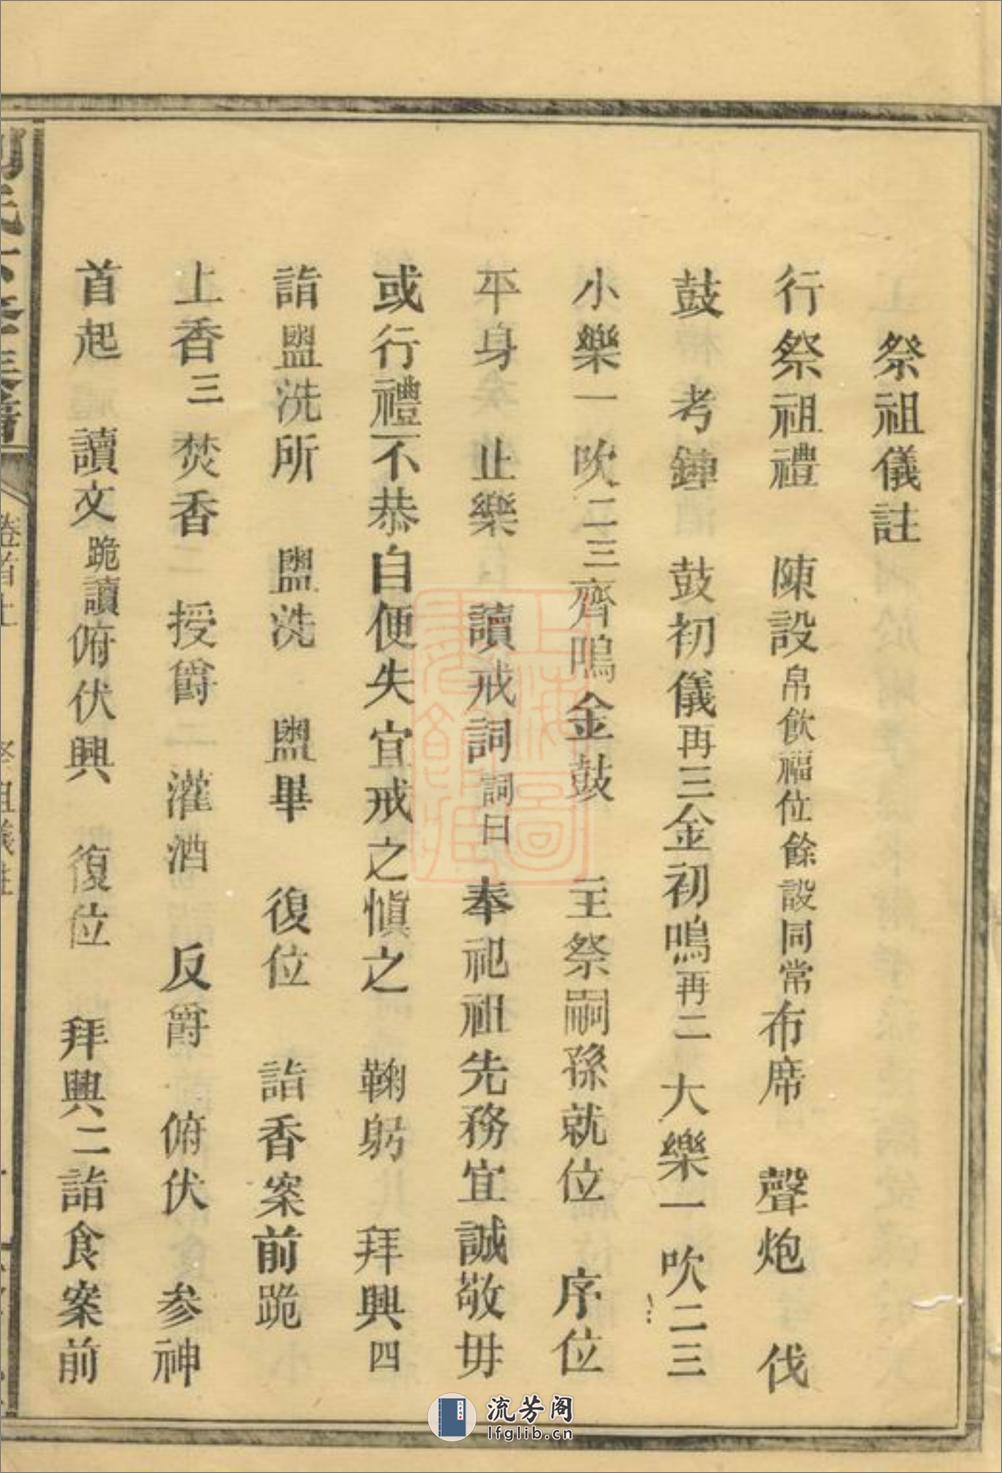 祭祖儀註
行祭祖禮 陳設帛飲福位餘設同常布席 聲炮 伐
鼓 考鍾 鼓初儀再三金初鳴再二 大樂一吹二三
小樂一吹二三齊鳴金鼓 主祭嗣孫就位 序位
平身 止樂 讀戒詞詞曰奉祀祖先務宜誠敬毋
或行禮不恭自便失宜戒之愼之 鞠躬 拜興四
詣盥洗所 盥洗 盥畢 復位 詣香案前跪
上香三焚香二授爵二灌酒 反爵 俯伏 参神
首起 讀文跪讀俯伏興 復位 拜興二詣食案前
卷首上
祭祖儀註
流芳阁
lfglib.cn